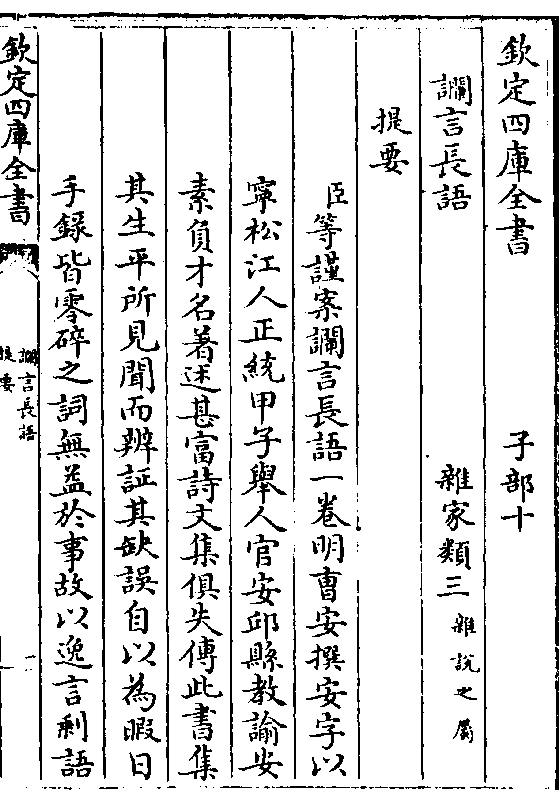 欽定四庫全書　子部十
讕言長語　雜家類三雜說之屬
提要
臣等謹案讕言長語一卷明曺安撰安字以
寧松江人正統甲子舉人官安邱縣教諭安
素負才名著述甚富詩文集俱失傳此書集
其生平所見聞而辨証其缺誤自以為暇日
手錄皆零碎之詞無益於事故以逸言剩語
欽定四庫全書
讕言長語
提要
一